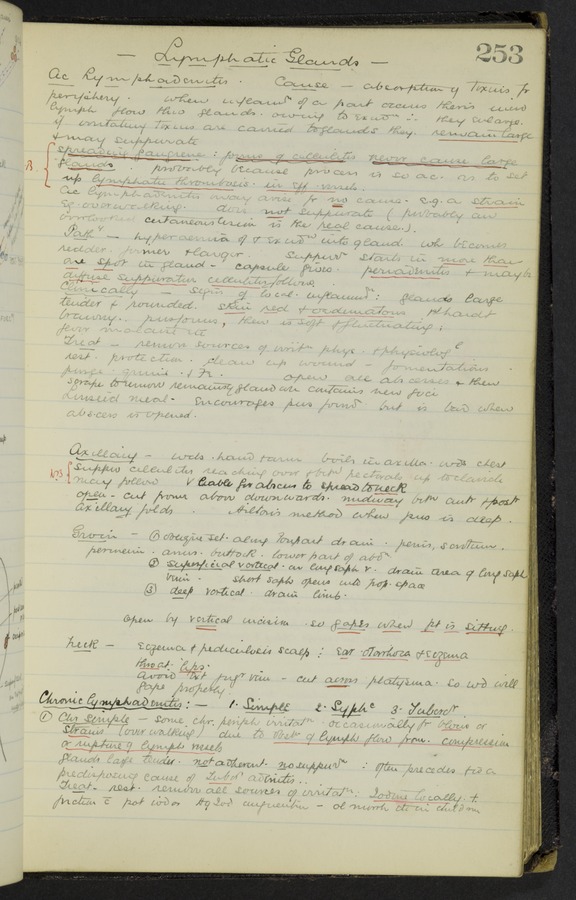 253
— Lymphatic Glands —
Ac Lymphadenitis. Cause — absorption of toxins fr
periphery. When inflamn of a part occurs there is incd
lymph flow thro glands. owing to exudn ∴ they enlarge.
if irritating toxins are carried to glands they remain large
& may suppurate
spreading gangrene: forms of cellulitis never cause large
glands. probably because process is so ac. as to set
up lymphatic thrombosis in eff. vessels.
Ac Lymphadenitis may arise fr no cause. e.g. a strain
eg. overwalking. does not suppurate (probably an
overlooked cutaneous lesion is the real cause).
Pathy — hyperaemia of & exudn into gland who becomes
redder. firmer & larger. Suppurn starts in more than
one spot in gland — capsule gives. periadenitis & maybe
diffuse suppurative cellulitis follows.
Clinically — signs of local inflammn: glands large
tender & rounded. skin red & oedematous & hard &
brawny. pus forms, then is soft & fluctuating:
fever malaise etc
Treat — remove sources of irritn phys. & physiologl
rest. protection. clean up wound — fomentations.
purge. quinine. open all abscesses & then
scrape to remove remaining gland wh contains new foci
Linseed meal. Encourages pus formn but is bad when
abscess is opened.
Axillary — wds. hand & arm boils in axilla. wds chest
NB suppve cellulitis reaching over & betn pectorals up to clavicle
may follow & liable for abscess to spread to neck
open — cut from above downwards. midway betn ant & post
axillary folds. Hilton's method when pus is deep.
Groin — ① oblique set. along Poupart drain. penis, scrotum.
perineum. anus. buttock. lower part of abdn
② superficial vertical. on long saph v. drain area of long saph
vein. short saph opens into pop. space
③ deep vertical. drain limb.
open by vertical incision so gapes when pt is sitting.
Neck — Eczema & pediculosis scalp: Ear. otorrhoea & eczema
throat: lips.
avoid Ext jugr vein — cut across platysma. so wd will
gape properly.
Chronic Lymphadenitis: — 1. Simple 2. Syphc 3. Tubercr
① Chr simple — some chr. periph irritatn. occasionally fr blows or
strains (over walking) due to obstn of lymph flow from compression
or rupture of lymph vessels
Glands large tender. not adherent. no suppurn: often precedes & is a
predisposing cause of Tubr adenitis..
Treat. rest. remove all sources of irritatn: Iodine locally. &
friction c pot iodos unguentum — ol morrh etc in children